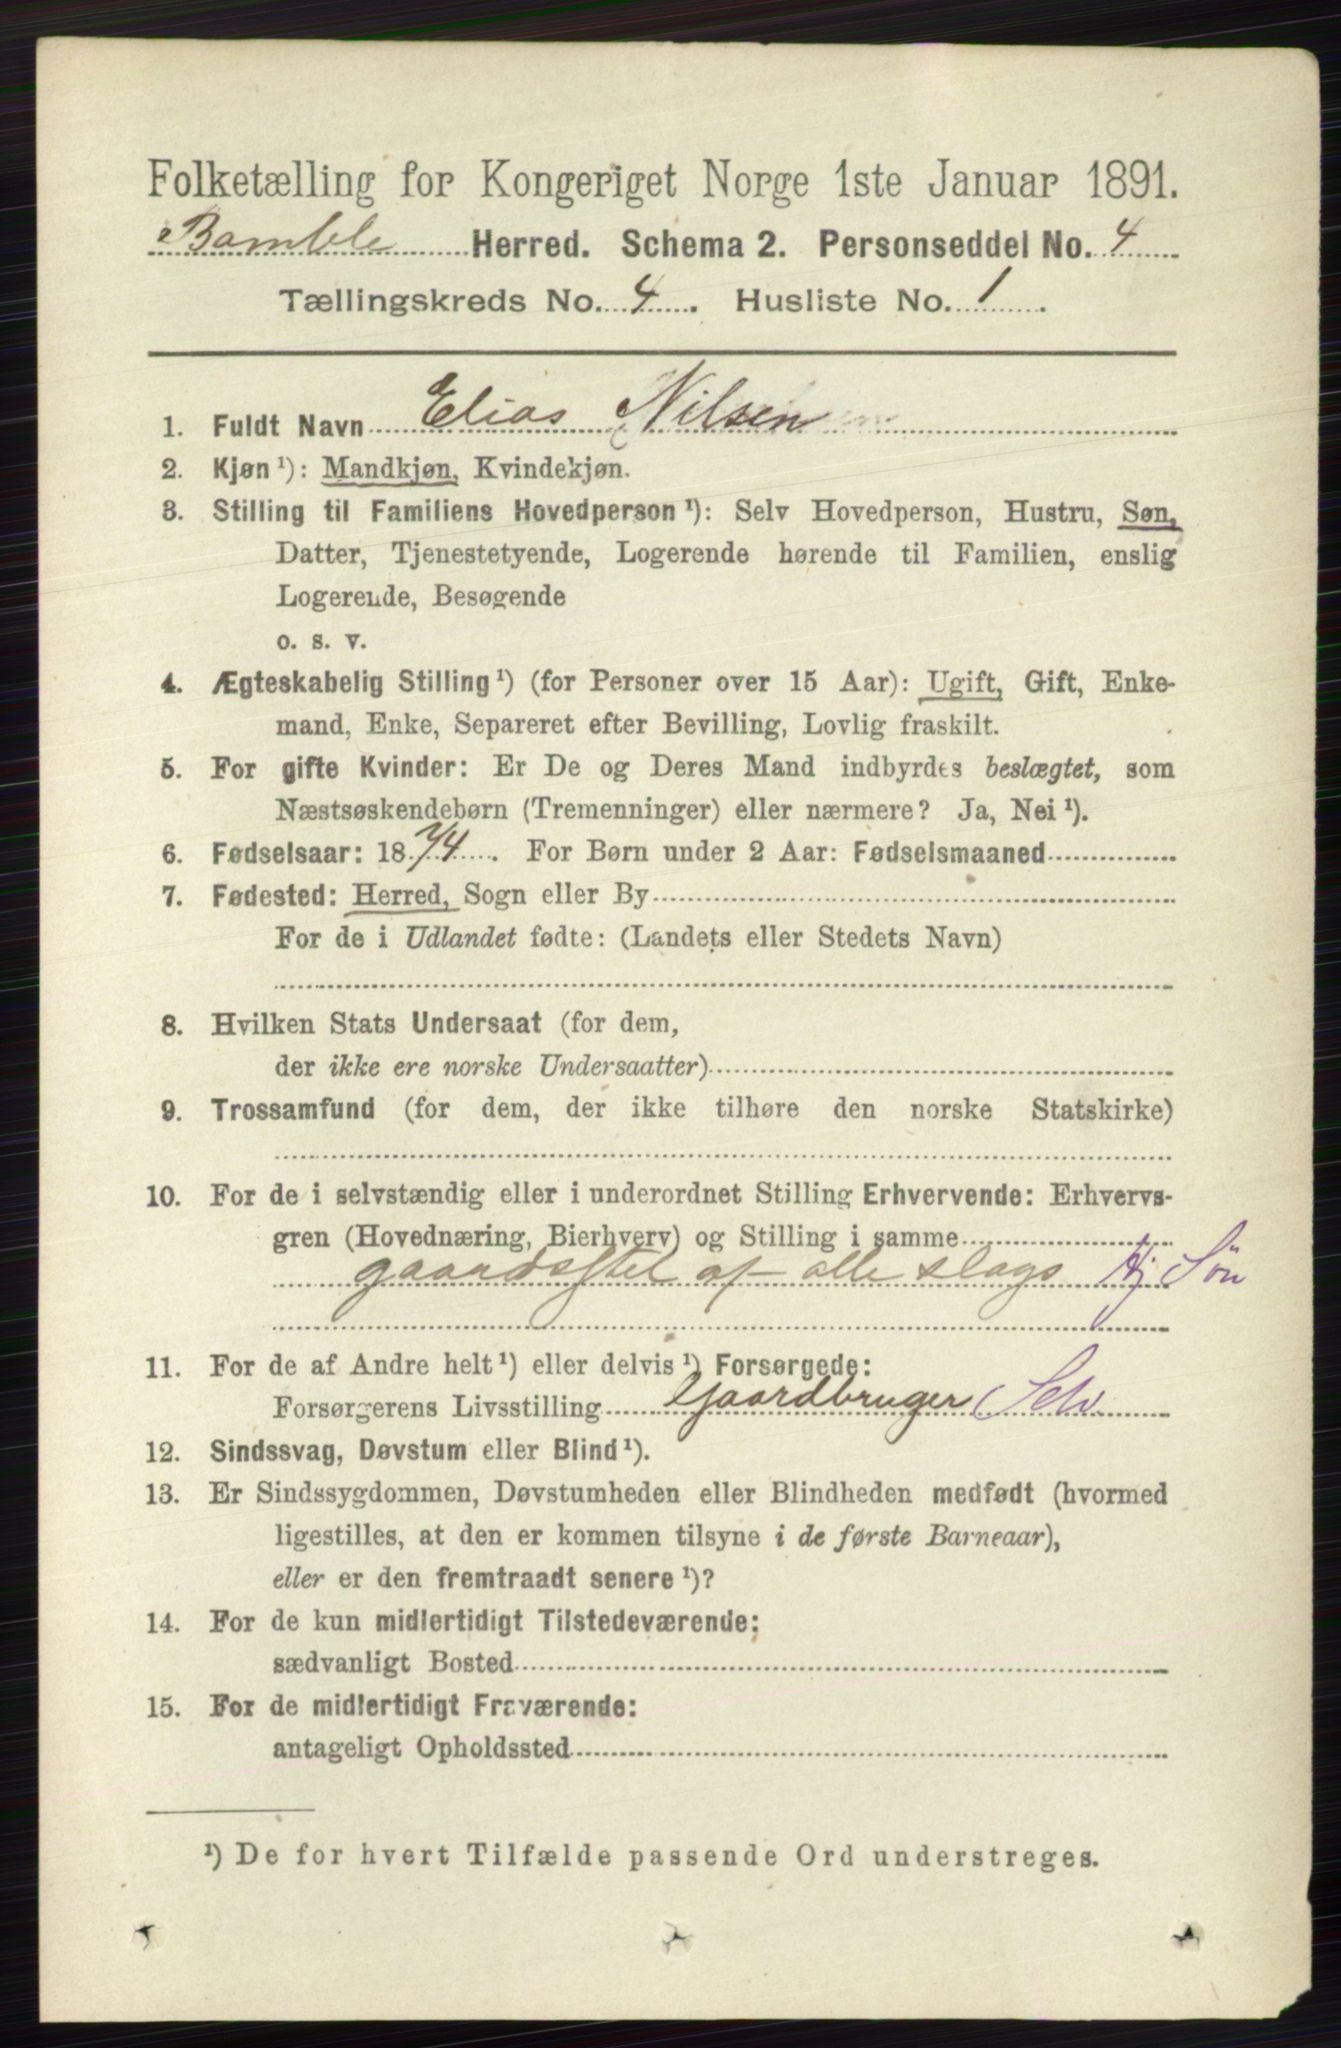 Folketælling for Kongeriget Norge 1ste Januar 1891.
Bamble Herred. Schema 2. Personseddel No. 4
Tællingskreds No. 4. Husliste No. 1.
1. Fuldt Navn Elias Nilsen
2. Kjøn ¹): Mandkjøn, Kvindekjøn.
3. Stilling til Familiens Hovedperson ¹): Selv Hovedperson, Hustru, Søn,
Datter, Tjenestetyende, Logerende hørende til Familien, enslig
Logerende, Besøgende
o. s. v.
4. Ægteskabelig Stilling ¹) (for Personer over 15 Aar): Ugift, Gift, Enke-
mand, Enke, Separeret efter Bevilling, Lovlig fraskilt.
5. For gifte Kvinder: Er De og Deres Mand indbyrdes beslægtet, som
Næstsøskendebørn (Tremenninger) eller nærmere? Ja, Nei ¹).
6. Fødselsaar: 1874. For Børn under 2 Aar: Fødselsmaaned
7. Fødested: Herred, Sogn eller By
For de i Udlandet fødte: (Landets eller Stedets Navn)
8. Hvilken Stats Undersaat (for dem,
der ikke ere norske Undersaatter)
9. Trossamfund (for dem, der ikke tilhøre den norske Statskirke)
10. For de i selvstændig eller i underordnet Stilling Erhvervende: Erhvervs-
gren (Hovednæring, Bierhverv) og Stilling i samme
gaardsstel af alle slags Hj Søn
11. For de af Andre helt ¹) eller delvis ¹) Forsørgede:
Forsørgerens Livsstilling Gaardbruger Selv
12. Sindssvag, Døvstum eller Blind ¹).
13. Er Sindssygdommen, Døvstumheden eller Blindheden medfødt (hvormed
ligestilles, at den er kommen tilsyne i de første Barneaar),
eller er den fremtraadt senere ¹)?
14. For de kun midlertidigt Tilstedeværende:
sædvanligt Bosted
15. For de midlertidigt Fraværende:
antageligt Opholdssted
¹) De for hvert Tilfælde passende Ord understreges.